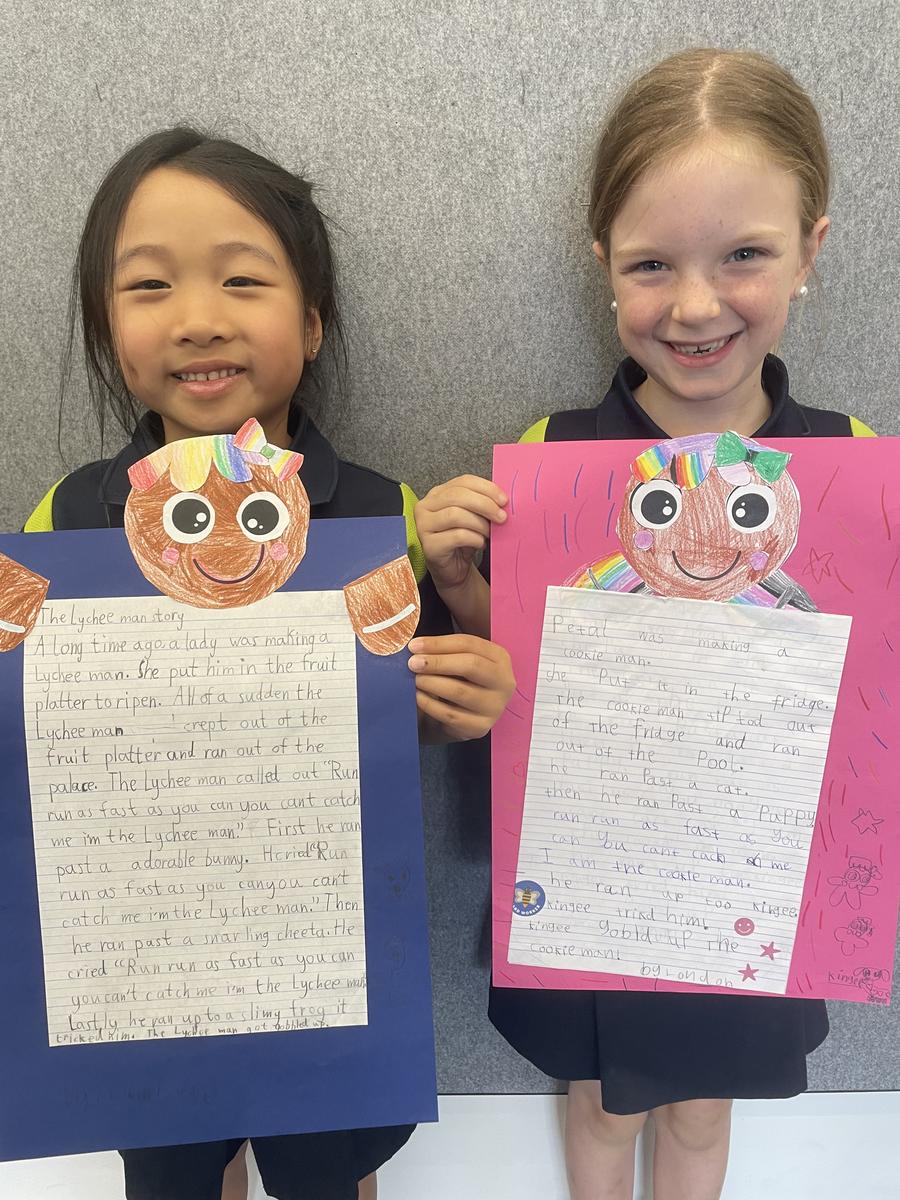 The Lychee man story
A long time ago a lady was making a
Lychee man. She put him in the fruit
platter to ripen. All of a sudden the
Lychee man crept out of the
fruit platter and ran out of the
palace. The Lychee man called out "Run
run as fast as you can you cant catch
me i'm the Lychee man." First he ran
past a adorable bunny. He cried "Run
run as fast as you can you can't
catch me i'm the Lychee man." Then
he ran past a snarling cheeta. He
cried "Run run as fast as you can
you can't catch me i'm the Lychee man
Lastly he ran up to a slimy frog it
tricked him. The Lychee man got gobbled up.
Petal was making a
cookie man.
She put it in the fridge.
The cookie man tip tod out
of the fridge and ran
out of the Pool.
he ran Past a cat.
then he ran Past a Puppy
run run as fast as you
can you cant cach me
I am the cookie man.
he ran up too kingee.
kingee trikd him!
kingee gobld up the
cookie man!
by London